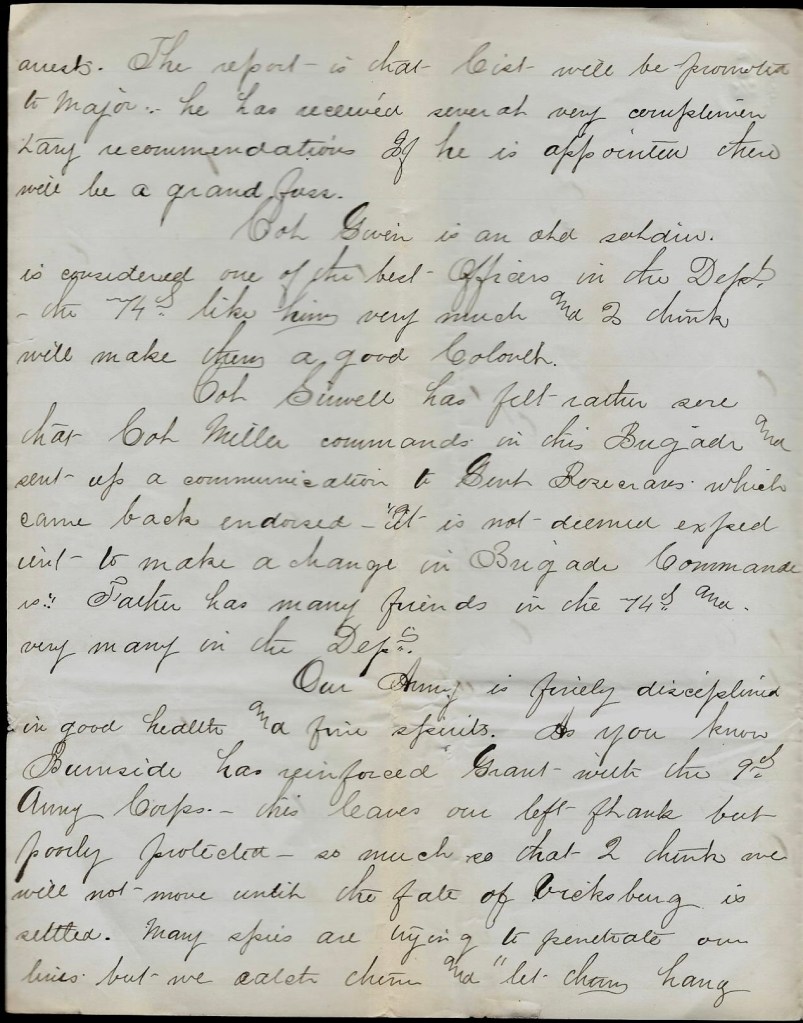 arrests. The report is that Cist will be promoted
to Major - he has received several very complimen
tary recommendations If he is appointed there
will be a grand fuss.
Col Given is an old soldier.
is considered one of the best Officers in the Dept.
- the 74th like him very much and I think
will make them a good Colonel.
Col Sirwell has felt rather sore
that Col Miller commands in this Brigade and
sent up a communication to Genl Rosecrans which
came back endorsed - "It is not deemed exped
ient to make a change in Brigade Commande
rs" Father has many friends in the 74th and
very many in the Dept.
Our Army is finely disciplined
in good health and fine spirits. As you know
Burnside has reinforced Grant with the 9th
Army Corps. - this leaves our left flank but
poorly protected - so much so that I think we
will not move until the fate of Vicksburg is
settled. Many spies are trying to penetrate our
lines but we catch them and "let them hang